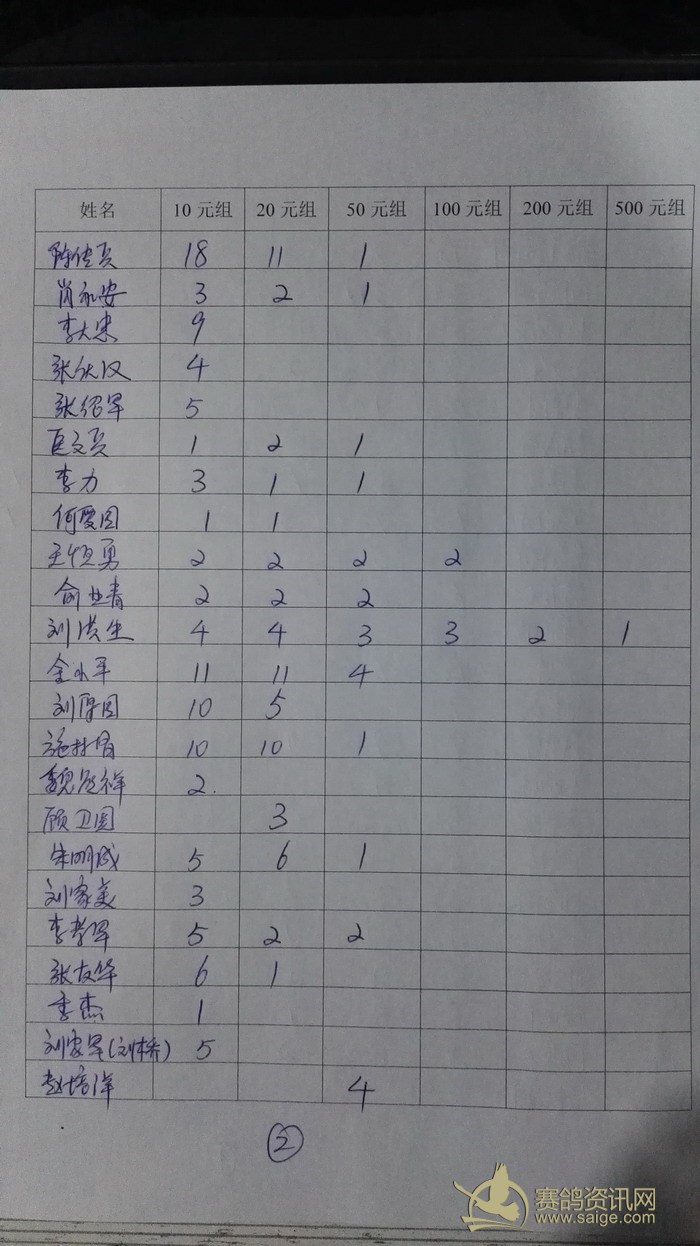 姓名 10元组 20元组 50元组 100元组 200元组 500元组
18 11 1
肖永安 3 2 1
李大忠 9
张 4
张绍军 5
1 2 1
李力 3 1 1
何爱国 1 1
王恒勇 2 2 2 2
俞业青 2 2 2
刘洪生 4 4 3 3 2 1
金小平 11 11 4
刘厚国 10 5
施 10 10 1
魏 祥 2.
顾卫国 3
朱明成 5 6 1
刘家美 3
李孝军 5 2 2
张友华 6 1
季杰 1
刘家军(刘桥) 5
赵培洋 4
2
赛鸽资讯网
www.saige.com